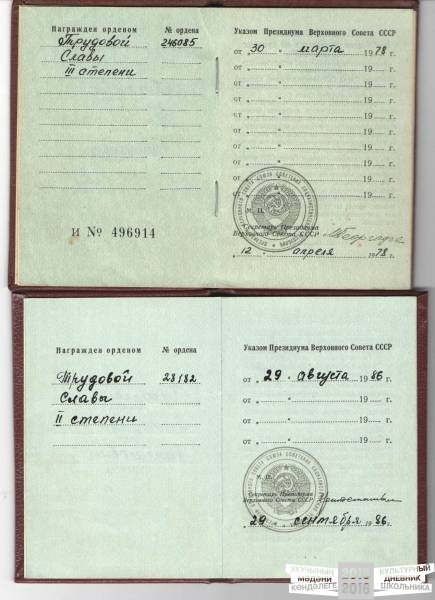 Награжден орденом
№ ордена
Трудовой
246085
Славы
III степени
И № 496914
Указом Президиума Верховного Совета СССР
от „ 30 “ марта 1978 г.
от „ “ 19 г.
от „ “ 19 г.
от „ “ 19 г.
от „ “ 19 г.
от „ “ 19 г.
от „ “ 19 г.
от „ “ 19 г.
от „ “ 19 г.
М. П.
Секретарь Президиума
Верховного Совета СССР
„ 12 “ апреля 1978 г.
Награжден орденом
№ ордена
Трудовой
23182
Славы
II степени
Указом Президиума Верховного Совета СССР
от „ 29 “ августа 1986 г.
от „ “ 19 г.
от „ “ 19 г.
от „ “ 19 г.
М. П.
Секретарь Президиума
Верховного Совета СССР
„ 29 “ сентября 1986 г.
УКУЧЫНЫҢ
мәдәни
көндәлеге
2015
2016
КУЛЬТУРНЫЙ
ДНЕВНИК
ШКОЛЬНИКА